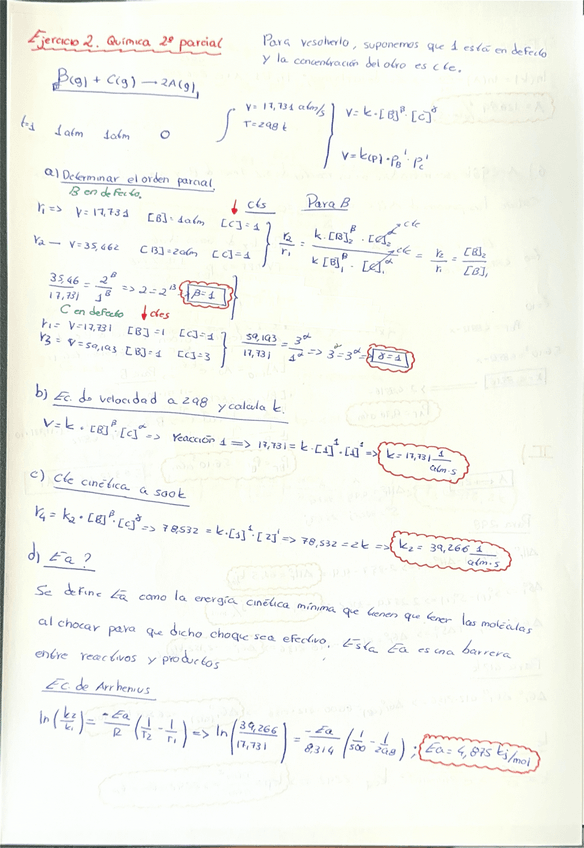 Ejercicio 2. Química 2º parcial
Para resolverlo, suponemos que 1 está en defecto
y la concentración del otro es cte.
B(g) + C(g) → 2A(g)
t=1 1atm 1atm 0
V = 17,731 atm/s
T=298 k
V = k·[B]^β·[C]^γ
V = k(p)·P_B^1·P_C^1
a) Determinar el orden parcial
B en defecto. ↓ cts Para B
r1 => V = 17,731 [B]=1atm [C]=1
r2 — V=35,462 [B]=2atm [C]=1
r2/r1 = k·[B]2^β·[C]2^α/k[B]1^β·[C]1^α = r2/r1 = [B]2/[B]1
cte
cte
35,46/17,731 = 2^β/1^β => 2=2^β β=1
C en defecto ↓ctes
r1 = V=17,731 [B]=1 [C]=1
r3 = V=59,193 [B]=1 [C]=3
59,193/17,731 = 3^α/1^α => 3=3^α = γ=1
b) Ec. de velocidad a 298 y calcula k.
V = k·[B]^β·[C]^α => reacción 1 => 17,731 = k·[1]^1·[1]^1 => k=17,731 1/atm·s
c) Cte cinética a 500k
r4 = k2·[B]^β·[C]^γ => 78,532 = k·[1]^1·[2]^1 => 78,532 = 2k => k2 = 39,266 1/atm·s
d) Ea?
Se define Ea como la energía cinética mínima que tienen que tener las moléculas
al chocar para que dicho choque sea efectivo. Esta Ea es una barrera
entre reactivos y productos
Ec. de Arrhenius
ln(k2/k1) = -Ea/R (1/T2 - 1/T1) => ln(39,266/17,731) = -Ea/8,314 (1/500 - 1/298); Ea = 4,875 kj/mol